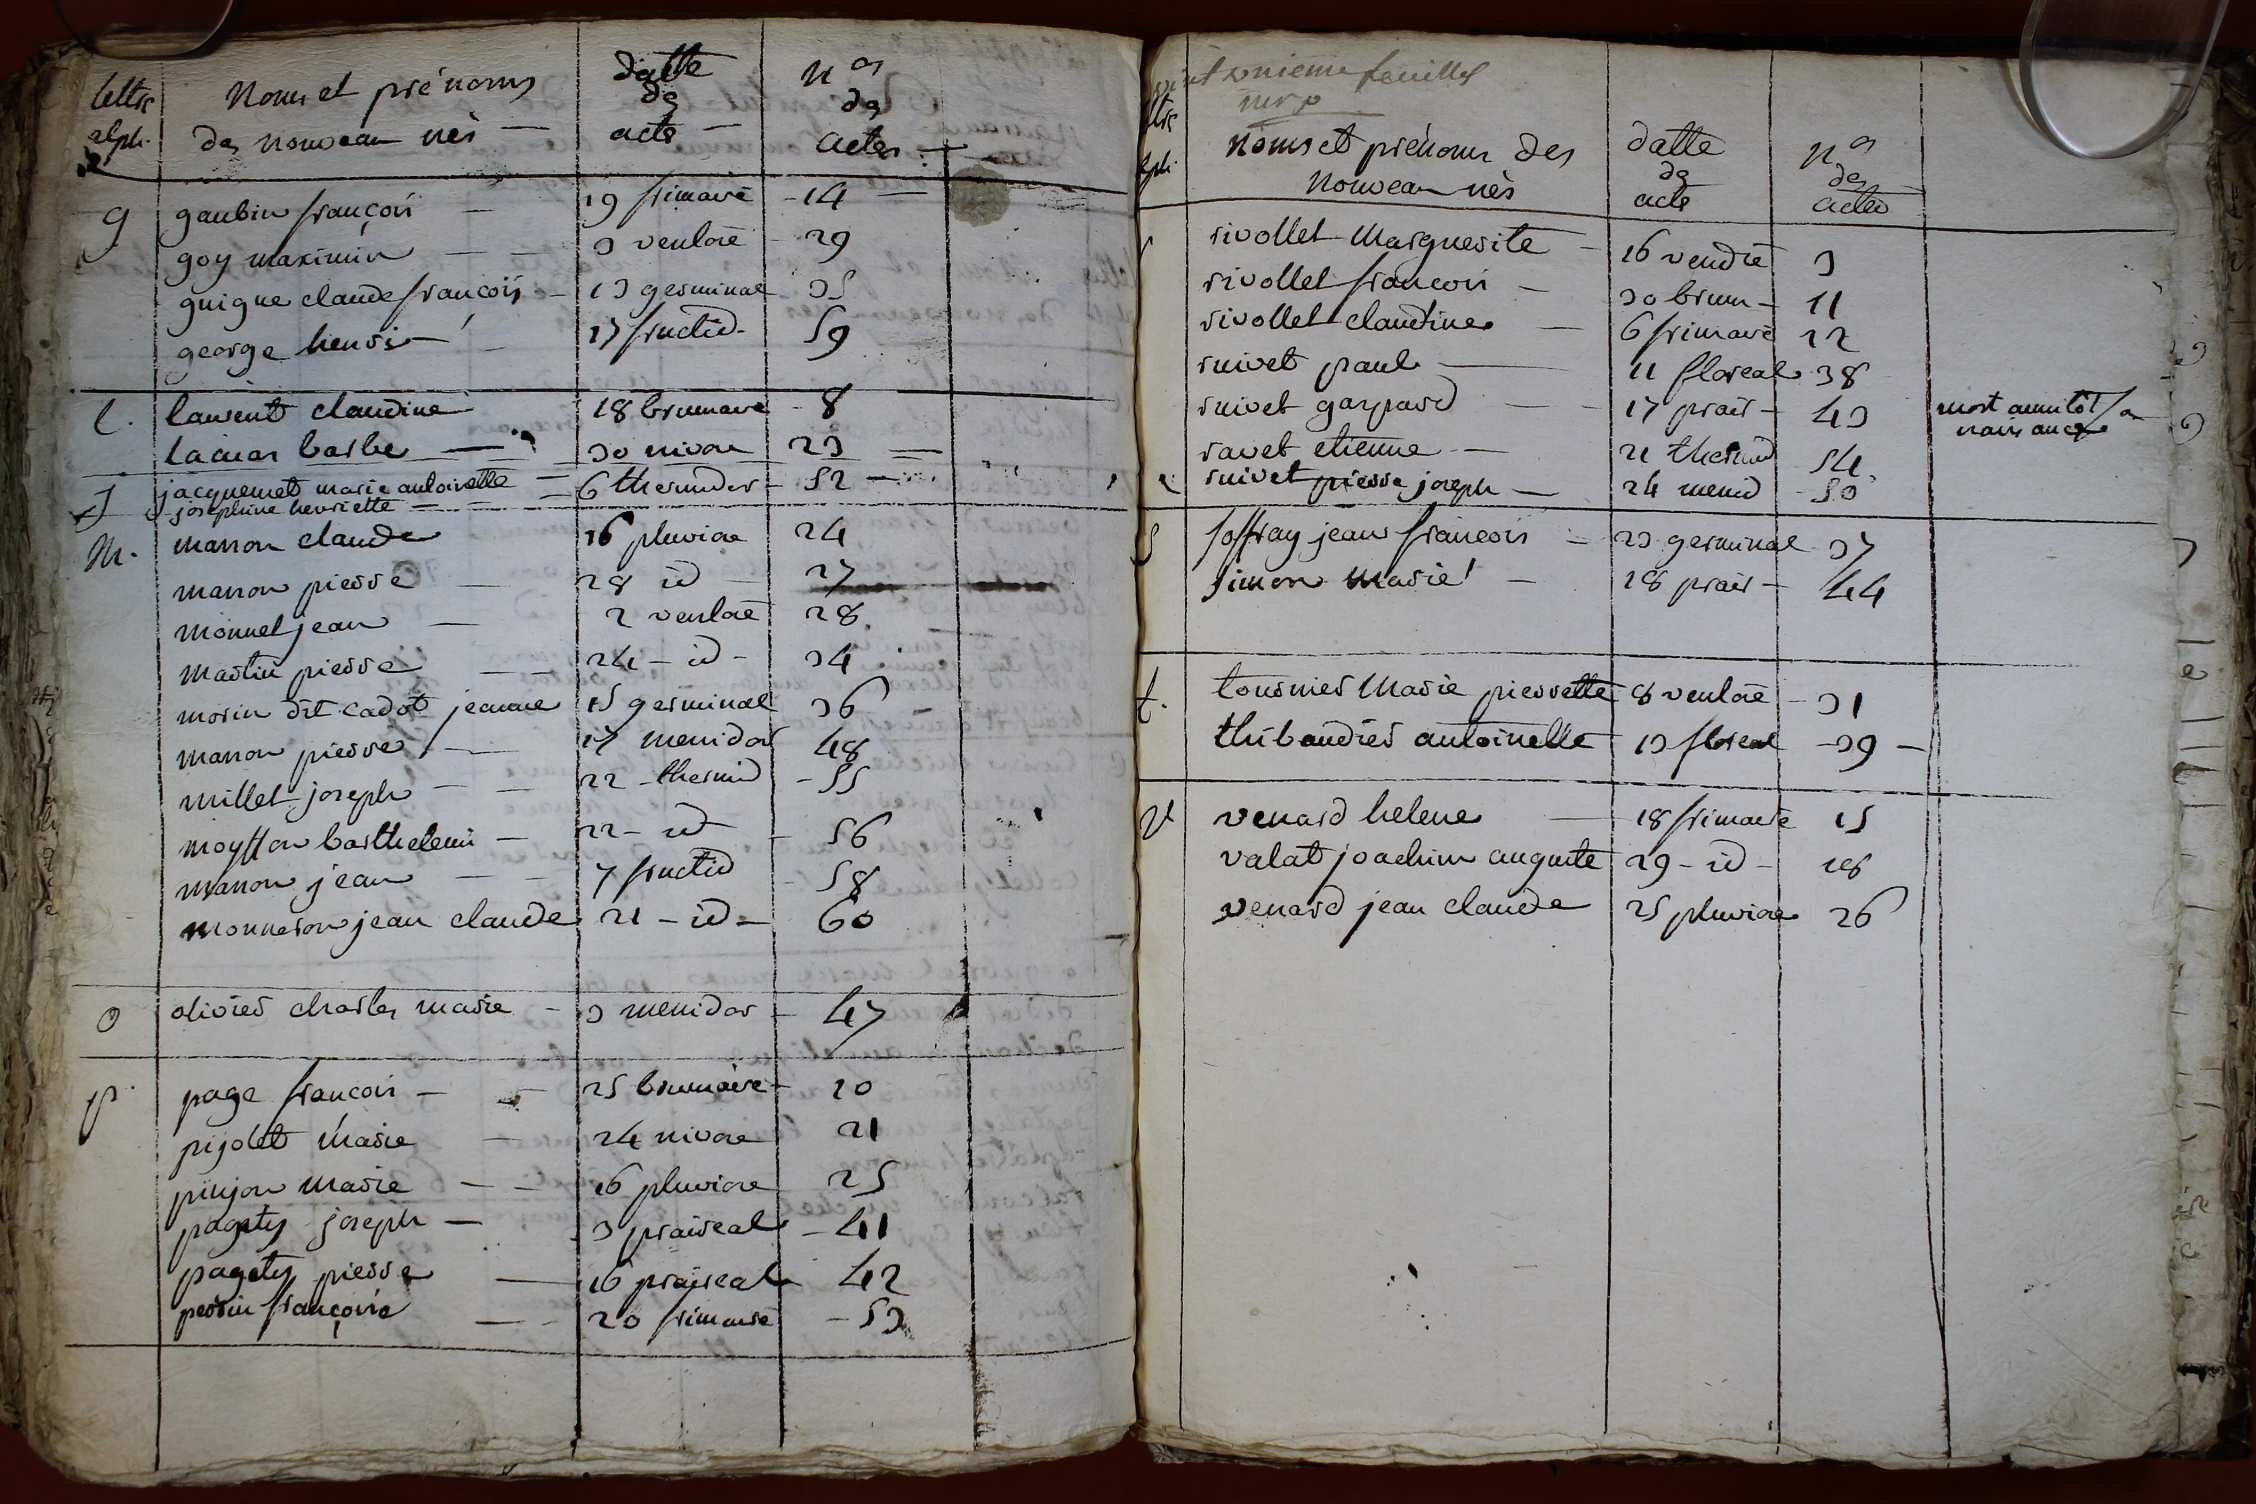 lettre alph. Noms et prénoms des nouveau nés — datte des acte — nos des actes
g gaubin françois — 19 frimaire - 14 —
goy maximin — 3 ventose - 29
guigue claude françois — 13 germinal 35
george henri — 17 fructid - 59
l. laurent claudine 18 brumaire - 8
lacuar barbe — 30 nivose 23 —
j jacquemet marie antoinette josephine henriette — 6 thermidor - 52 —
m. manon claude 16 pluviose 24
manon pierre — 28 id — 27
monnet jean — 2 ventose 28
martin pierre — 24 - id - 34
morin dit cadot jeanne 15 germinal 36
manon pierre — 17 messidor 48
millet joseph — 22 thermid - 55
moytton barthelemi — 22 - id - 56
manon jean — 7 fructid - 58
monneron jean claude 21 - id - 60
o olivier charles marie - 3 messidor - 47
p. page françois — 25 brumaire - 10
pijolet marie — 24 nivose 21
pinjon marie — 16 pluviose 25
pagety joseph — 3 praireal - 41
pagety pierre — 16 praireal 42
perrin françoise — 20 frimaire - 53
feuillet
verso
ltre alph. noms et prénoms des nouveau nés datte des acte nos des actes
rivollet Marguerite — 16 vendre 3
rivollet françois — 30 brum - 11
rivollet claudine — 6 frimaire 12
ruivet paul — 11 floreal 38
ruivet gaspard — 17 prair - 43 mort aussitôt sa naissance
ravet etienne — 21 thermid 54
ruivet pierre joseph — 24 messid - 50
s soffray jean françois — 23 germinal 37
simon marie — 28 prair - 44
t. tournier Marie pierrette 8 ventose - 31
thibaudier antoinette 13 floreal - 39 —
v venard helene — 18 frimaire 15
valat joachim auguste 29 - id - 18
venard jean claude 25 pluviose 26